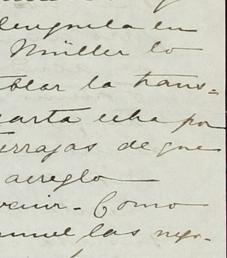 en
Müller lo
blar la trans=
carta echa por
terrajas de que
arreglo
venir - Como
manuel las nego-